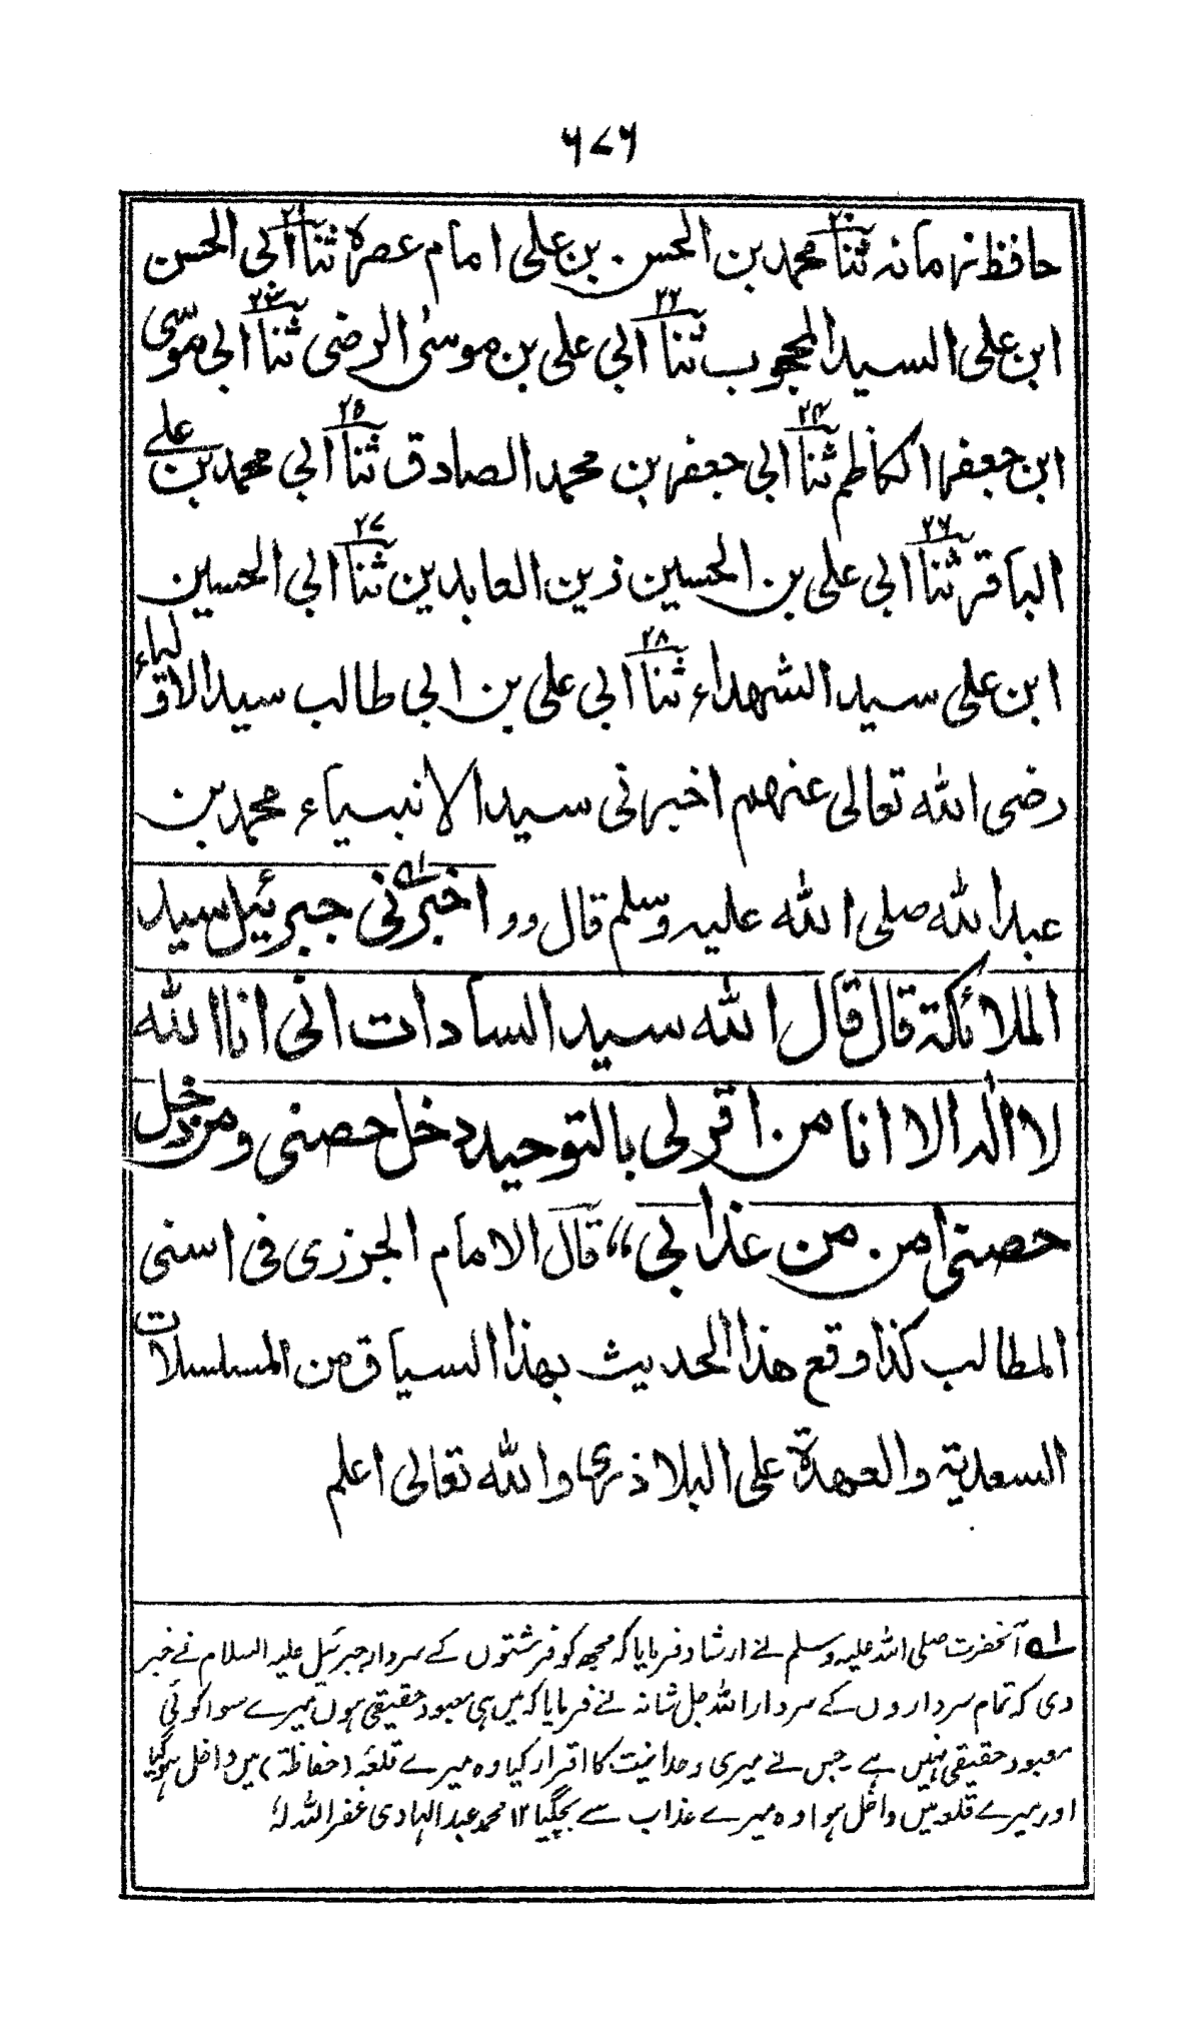 ۶۷۶
حافظ زمانہ ثنا۲۰ محمد بن الحسن بن علی امام عصرہ ثنا۲۱ ابی الحسن
ابن علی السید المحجوب ثنا۲۲ ابی علی بن موسیٰ الرضی ثنا۲۳ ابی موسی
ابن جعفر الکاظم ثنا۲۴ ابی جعفر بن محمد الصادق ثنا۲۵ ابی محمد بن علی
الباقر ثنا۲۶ ابی علی بن الحسین زین العابدین ثنا۲۷ ابی الحسین
ابن علی سید الشھداء ثنا۲۸ ابی علی بن ابی طالب سید الاولیاء
رضی اللہ تعالی عنھم اخبرنی سید الانبیاء محمد بن
عبد اللہ صلی اللہ علیہ وسلم قال وو اخبرنی۱ جبرئیل سید
الملائکۃ قال قال اللہ سید السادات انی انا اللہ
لا الٰہ الا انا من اقر لی بالتوحید دخل حصنی ومن دخل
حصنی امن من عذابی،، قال الامام الجزری فی اسنی
المطالب کذا وقع ھذا الحدیث بھذا السیاق من المسلسلات
السعدیۃ والعھدۃ علی البلاذری واللہ تعالی اعلم
۱ آنحضرت صلی اللہ علیہ وسلم نے ارشاد فرمایا کہ مجھ کو فرشتوں کے سردار جبرئیل علیہ السلام نے خبر
دی کہ تمام سرداروں کے سردار اللہ جل شانہ نے فرمایا کہ میں ہی معبود حقیقی ہوں میرے سوا کوئی
معبود حقیقی نہیں ہے۔ جس نے میری وحدانیت کا اقرار کیا وہ میرے قلعۂ (حفاظۃ) میں داخل ہوگیا
اور میرے قلعہ میں داخل ہوا وہ میرے عذاب سے بچ گیا ۱۲ محمد عبد الہادی غفر اللہ لہٗ